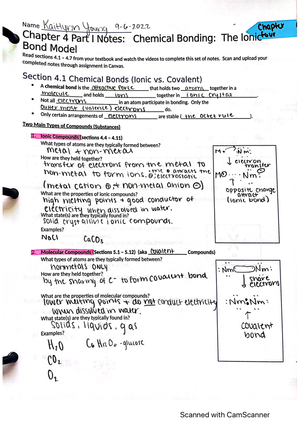 Name Kaitlynn Young 9-6-2022
Chapter four
Chapter 4 Part I Notes: Chemical Bonding: The Ionic
Bond Model
Read sections 4.1 – 4.7 from your textbook and watch the videos to complete this set of notes. Scan and upload your
completed notes through assignment in Canvas.
Section 4.1 Chemical Bonds (Ionic vs. Covalent)
• A chemical bond is the attractive force that holds two atoms together in a
molecule and holds ions together in ionic crystal
• Not all electrons in an atom participate in bonding. Only the
outer most (valence) electrons do.
• Only certain arrangements of electrons are stable (the octet rule).
Two Main Types of Compounds (Substances)
1. Ionic Compounds (sections 4.4 – 4.11)
What types of atoms are typically formed between?
metal + non-metal
How are they held together?
transfer of electrons from the metal to
non-metal to form ions.
(metal cation ⊕ + non-metal anion ⊖)
What are the properties of ionic compounds?
high melting points + good conductor of
electricity when dissolved in water.
What state(s) are they typically found in?
solid crystalline ionic compounds.
Examples?
NaCl CaCO3
M· ·Nm:
↓ electron transfer
M⊕ :Nm:
opposite charge attract
(ionic bond)
2. Molecular Compounds (Sections 5.1 – 5.12) (aka covalent Compounds)
What types of atoms are they typically formed between?
nonmetals only
How are they held together?
by the sharing of e- to form covalent bond
What are the properties of molecular compounds?
lower melting points + do not conduct electricity
when dissolved in water.
What state(s) are they typically found in?
solids, liquids, gas
Examples?
H2O C6H12O6 - glucose
CO2
O2
:Nm· ·Nm:
↓ share electrons
:Nm:Nm:
↑
covalent bond
Scanned with CamScanner